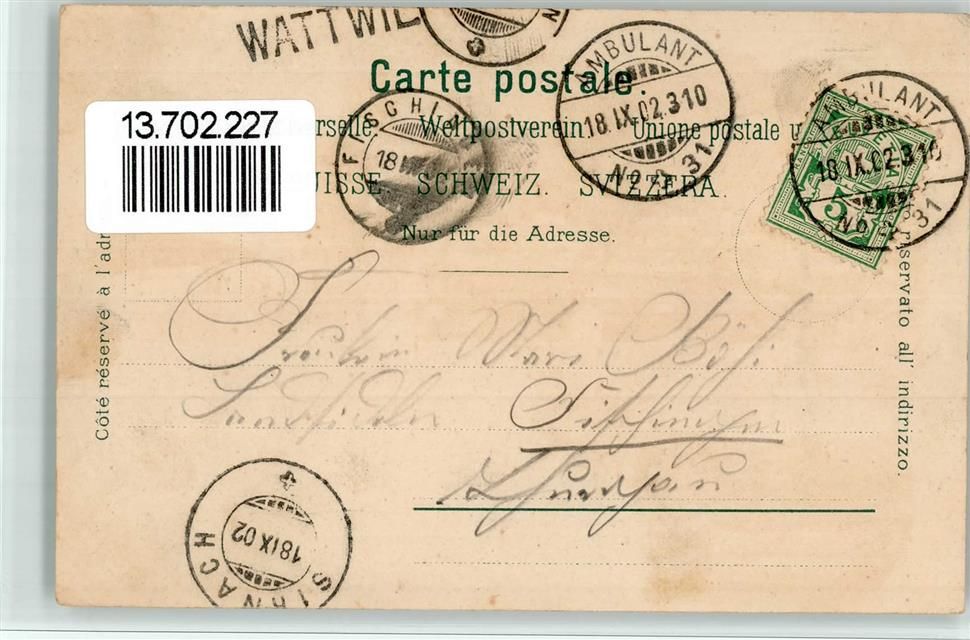 WATTWIL
Carte postale.
AMBULANT
18.IX.02.310
No 31
AMBULANT
18.IX.02.310
No 31
13.702.227
erselle. Weltpostverein. Unione postale u
FISCHI
18
UISSE. SCHWEIZ. SVIZZERA.
5
Nur für die Adresse.
Côté réservé à l'adr
riservato all' indirizzo.
Fräulein Böhi
Fischingen
Thurgau
SIRNACH
18 IX 02